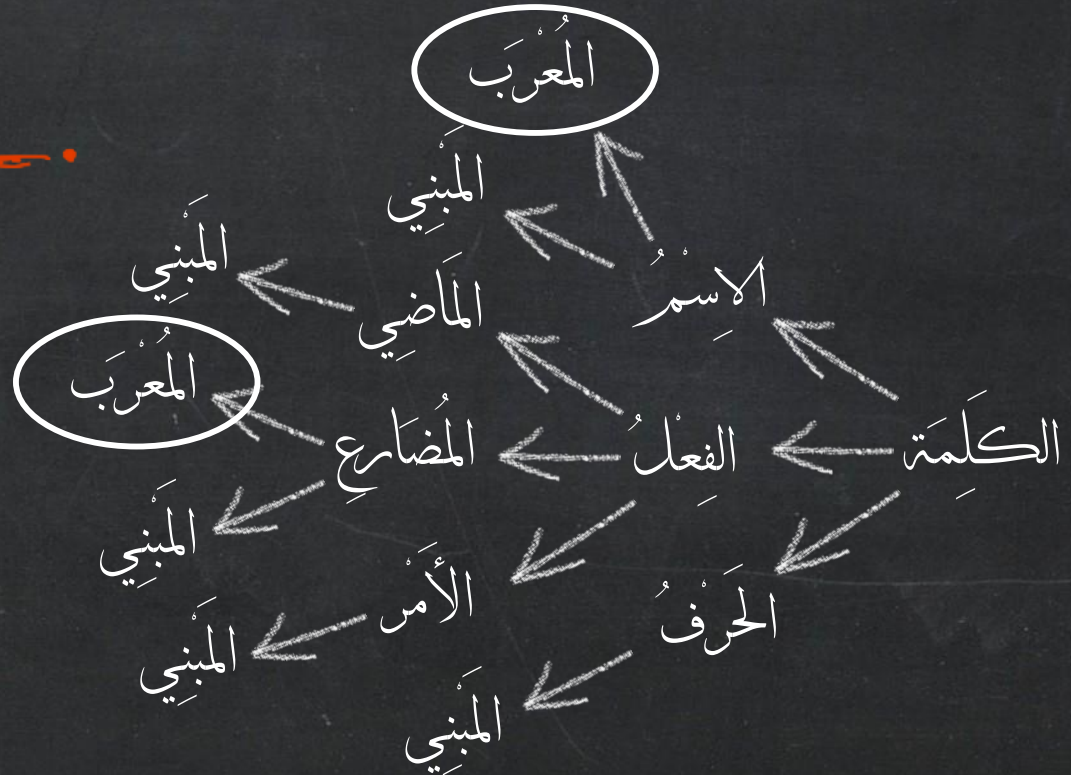 المُعْرَب
المَبْنِي
المَبْنِي
المَاضِي
الاِسْمُ
المُعْرَب
الكَلِمَة
الفِعْلُ
المُضَارِع
المَبْنِي
الأَمْر
الحَرْفُ
المَبْنِي
المَبْنِي